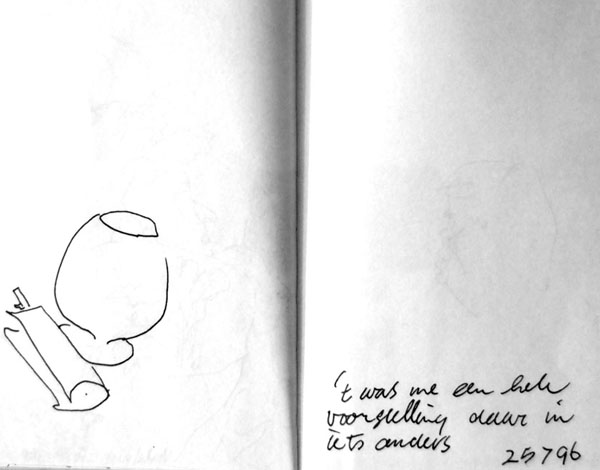 't was me een hele
voorstelling daar in
iets anders
25 7 96